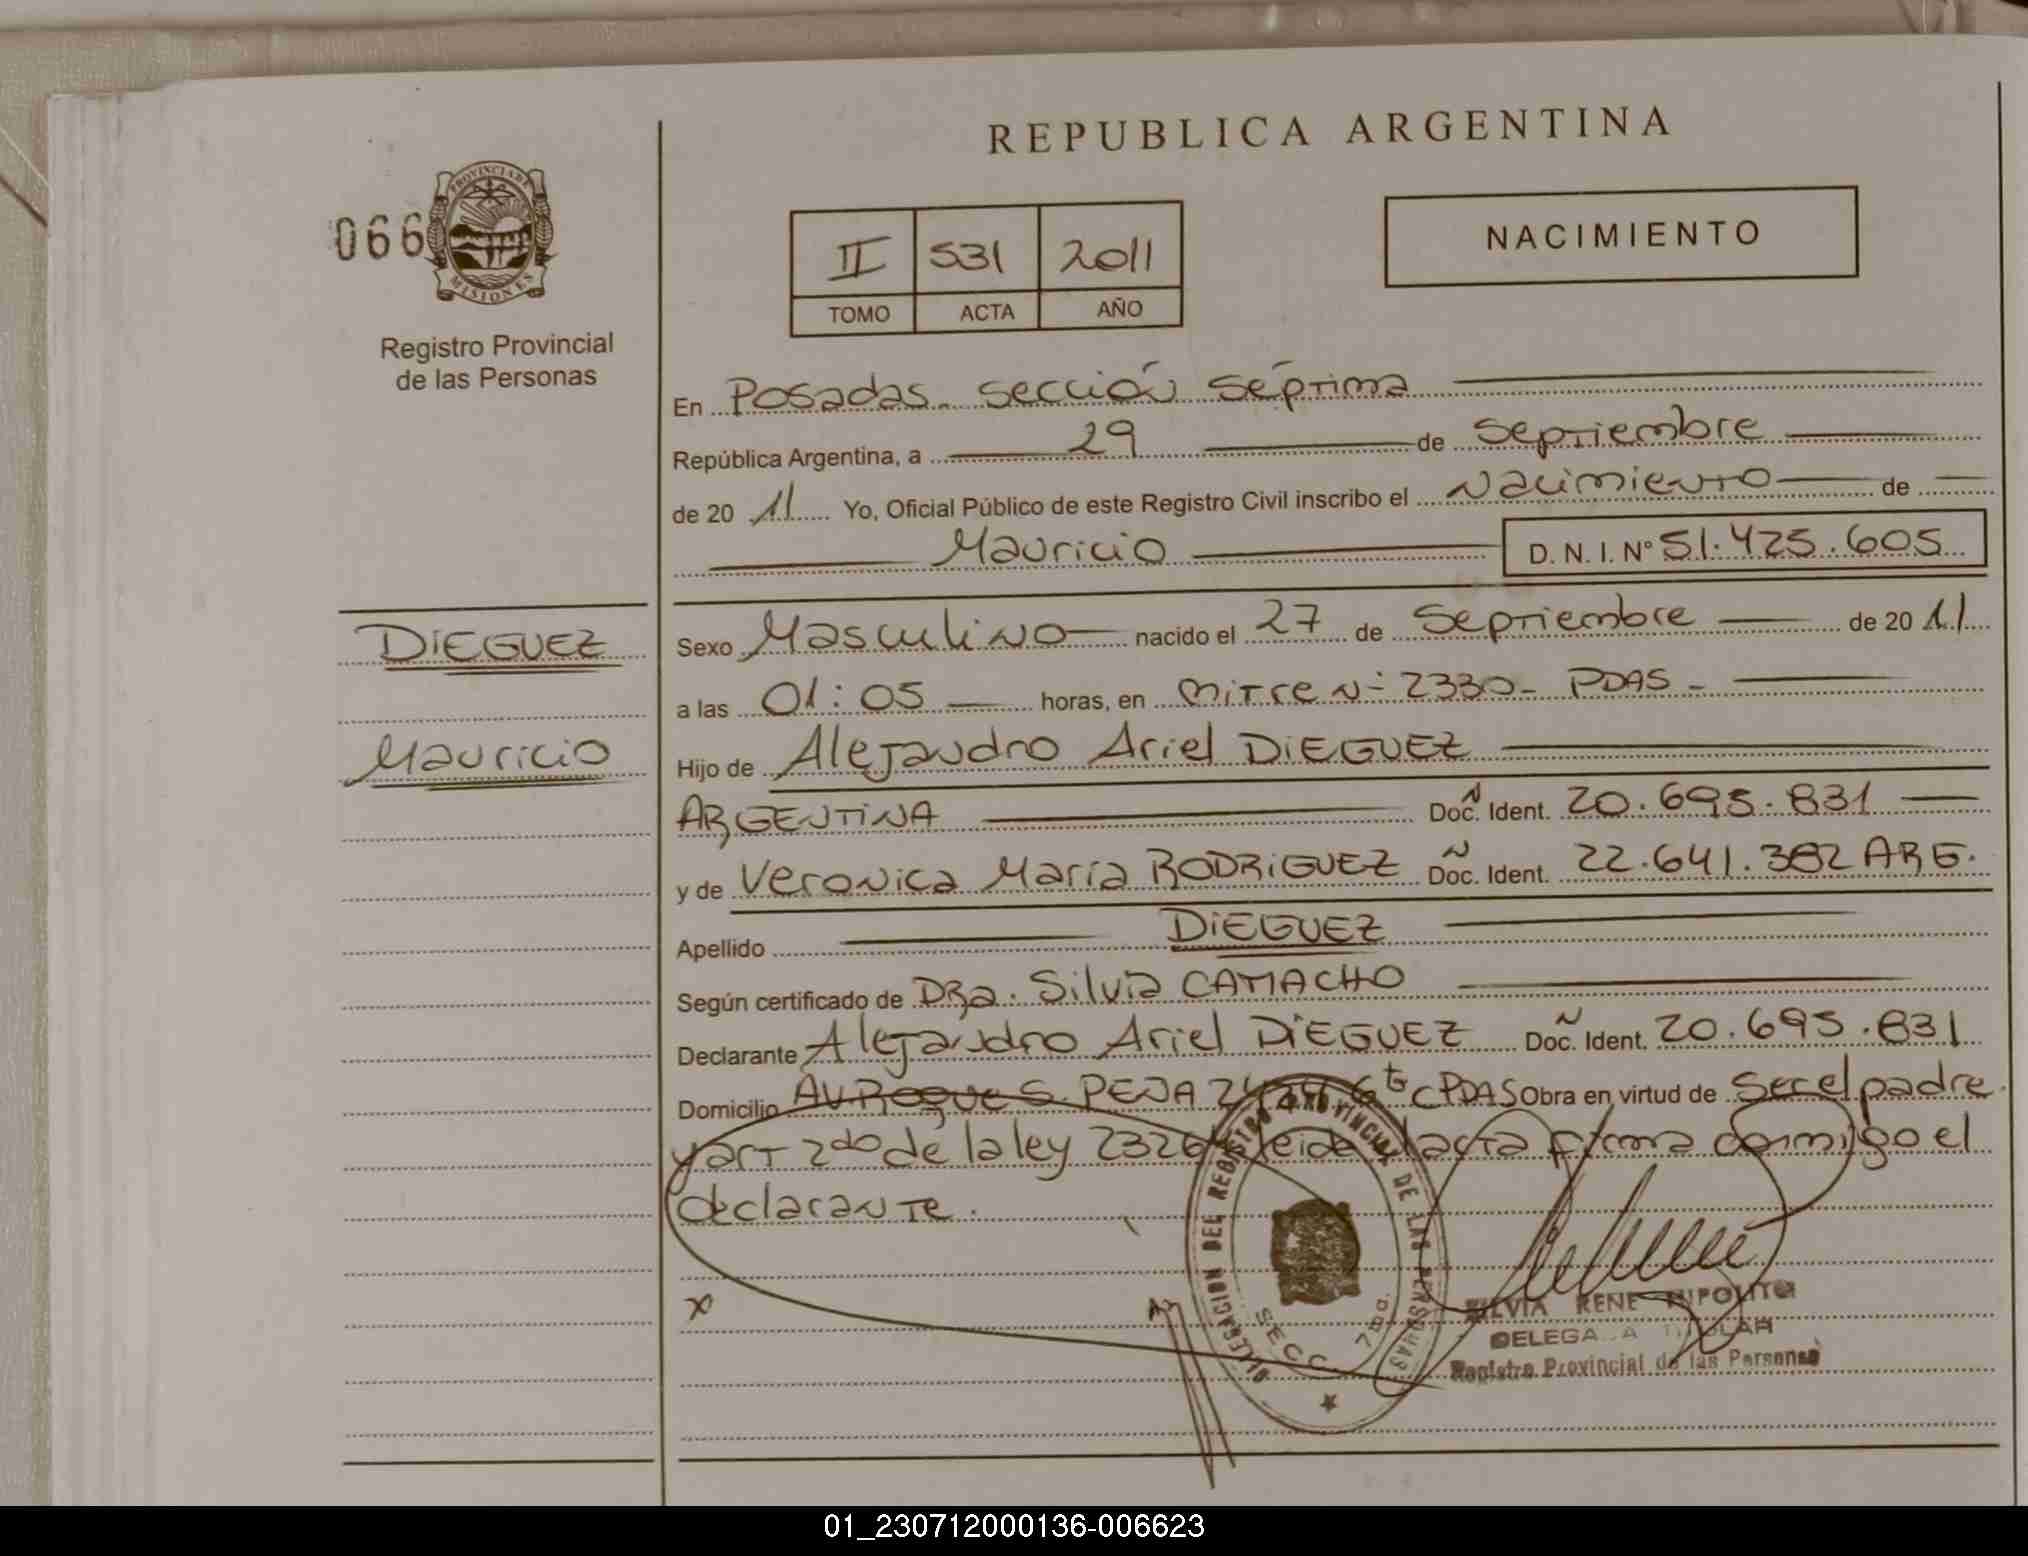 REPUBLICA ARGENTINA
066
PROVINCIA DE
MISIONES
Registro Provincial
de las Personas
II 531 2011
TOMO ACTA AÑO
NACIMIENTO
En Posadas sección séptima
República Argentina, a 29 de septiembre
de 2011 Yo, Oficial Público de este Registro Civil inscribo el Nacimiento de
Mauricio D. N. I. Nº 51.425.605
DIEGUEZ
Mauricio
Sexo Masculino nacido el 27 de septiembre de 2011
a las 01:05 horas, en mitre N- 2330- PDAS-
Hijo de Alejandro Ariel DIEGUEZ
ARGENTINA Doc. Ident. 20.695.831
y de Veronica María RODRIGUEZ Doc. Ident. 22.641.382 ARG.
Apellido DIEGUEZ
Según certificado de DRa. Silvia CAMACHO
Declarante Alejandro Ariel DIEGUEZ Doc. Ident. 20.695.831
Domicilio AV Roque S. PENA PDAS Obra en virtud de ser el padre
y art 2do de la ley 2326 leida acta firma conmigo el
declarante.
DELEGACION DEL REGISTRO PROVINCIAL DE LAS PERSONAS
SECC. 7ma.
SILVIA RENE HIPOLITO
DELEGADA TITULAR
Registro Provincial de las Personas
01_230712000136-006623